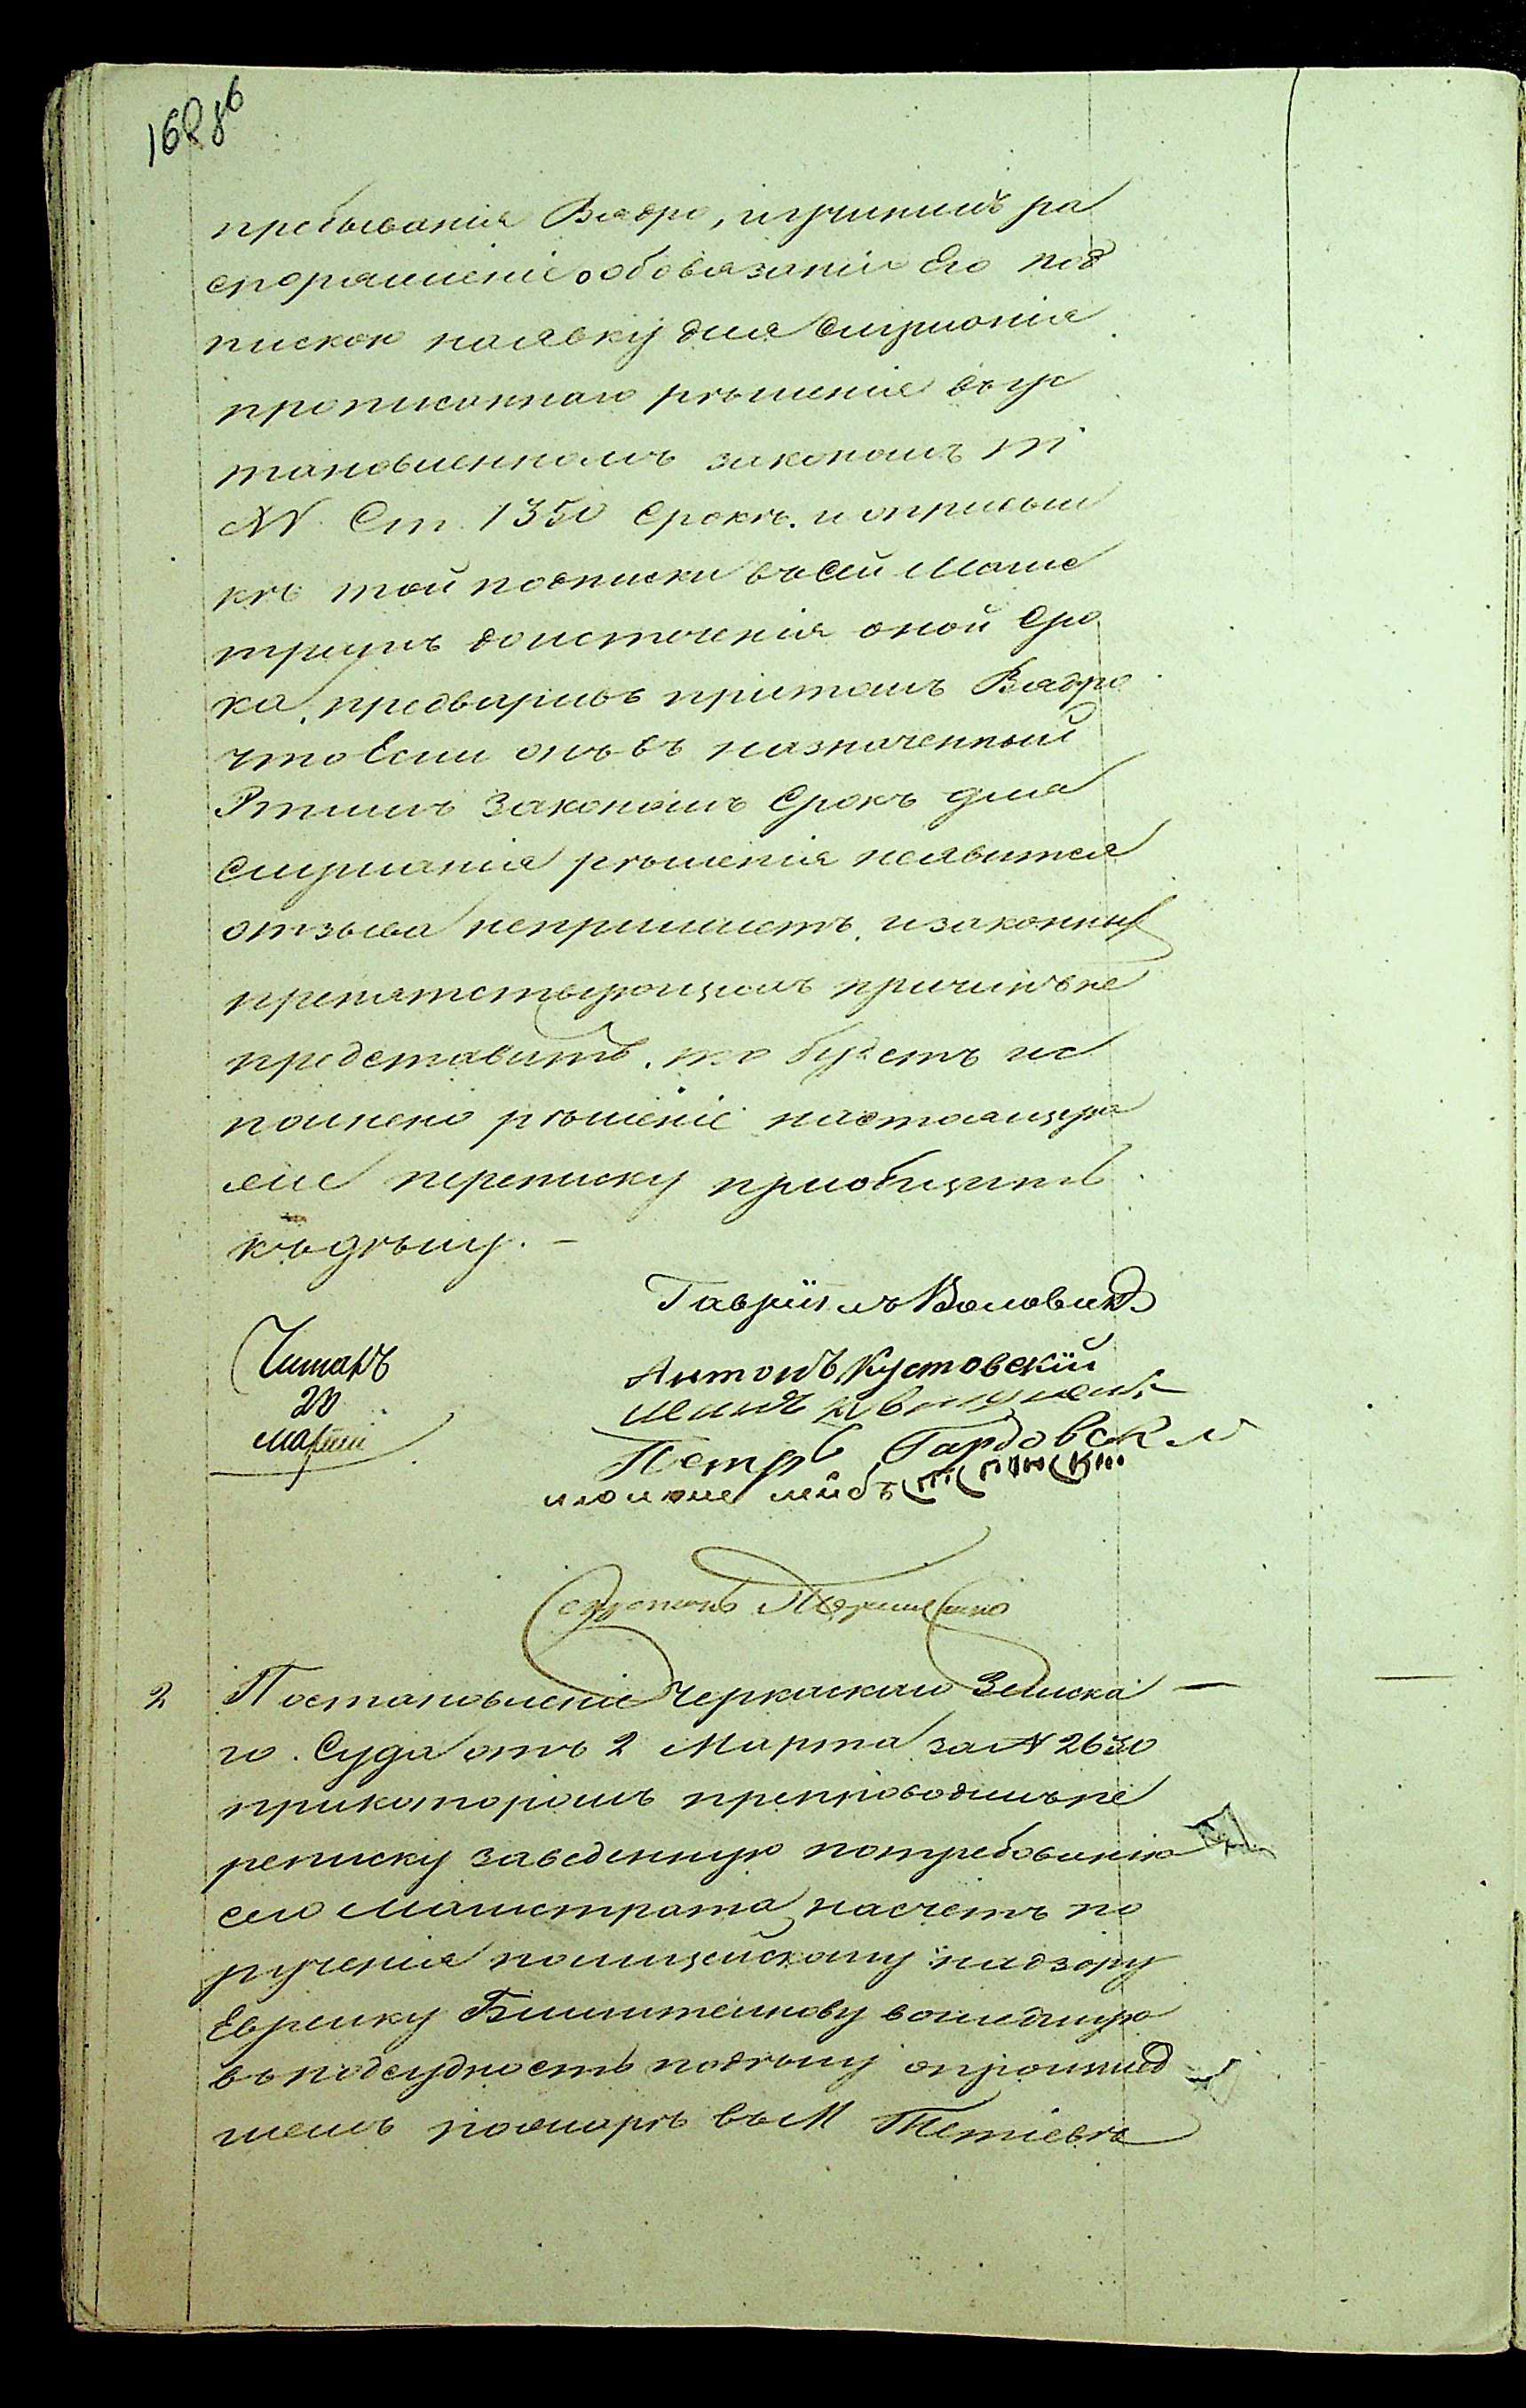 168 об
пребыванія Вядро, и учинить ра
споряженіе о обовязаніи Его под
пискою на явку для Слушанія
прописаннаго рѣшенія въ ус
тановленномъ закономъ т
XV Ст. 1350 Срокъ. и о присыл
кѣ той подписки въ Сей Магис
тратъ до истеченія оной Сро
ка, предваривъ при томъ Вядро
что Если онъ въ назначенный
Этимъ Закономъ Срокъ для
Слушанія рѣшенія неявится
отзыва непришлетъ, и законных
препятствующихъ причинъ не
представитъ, то будетъ ис
полнено рѣшеніе настоящую
же переписку приобщить
къ дѣлу. –
Гавріилъ
Читалъ
20
марта
Антонъ Кустовскій
Петръ Гардовскій
лейбъ
Секретарь
2 Постановленіе Черкаскаго Земска –
го Суда отъ 2 Марта за № 2630
при которомъ препроводилъ пе
реписку заведенную потребованію
сего Магистрата, насчетъ по
ручения полицейскому надзору
Еврейку вошедшую
въ подсудность подѣлу о происшед
шемъ пожарѣ въ М Тетіевѣ